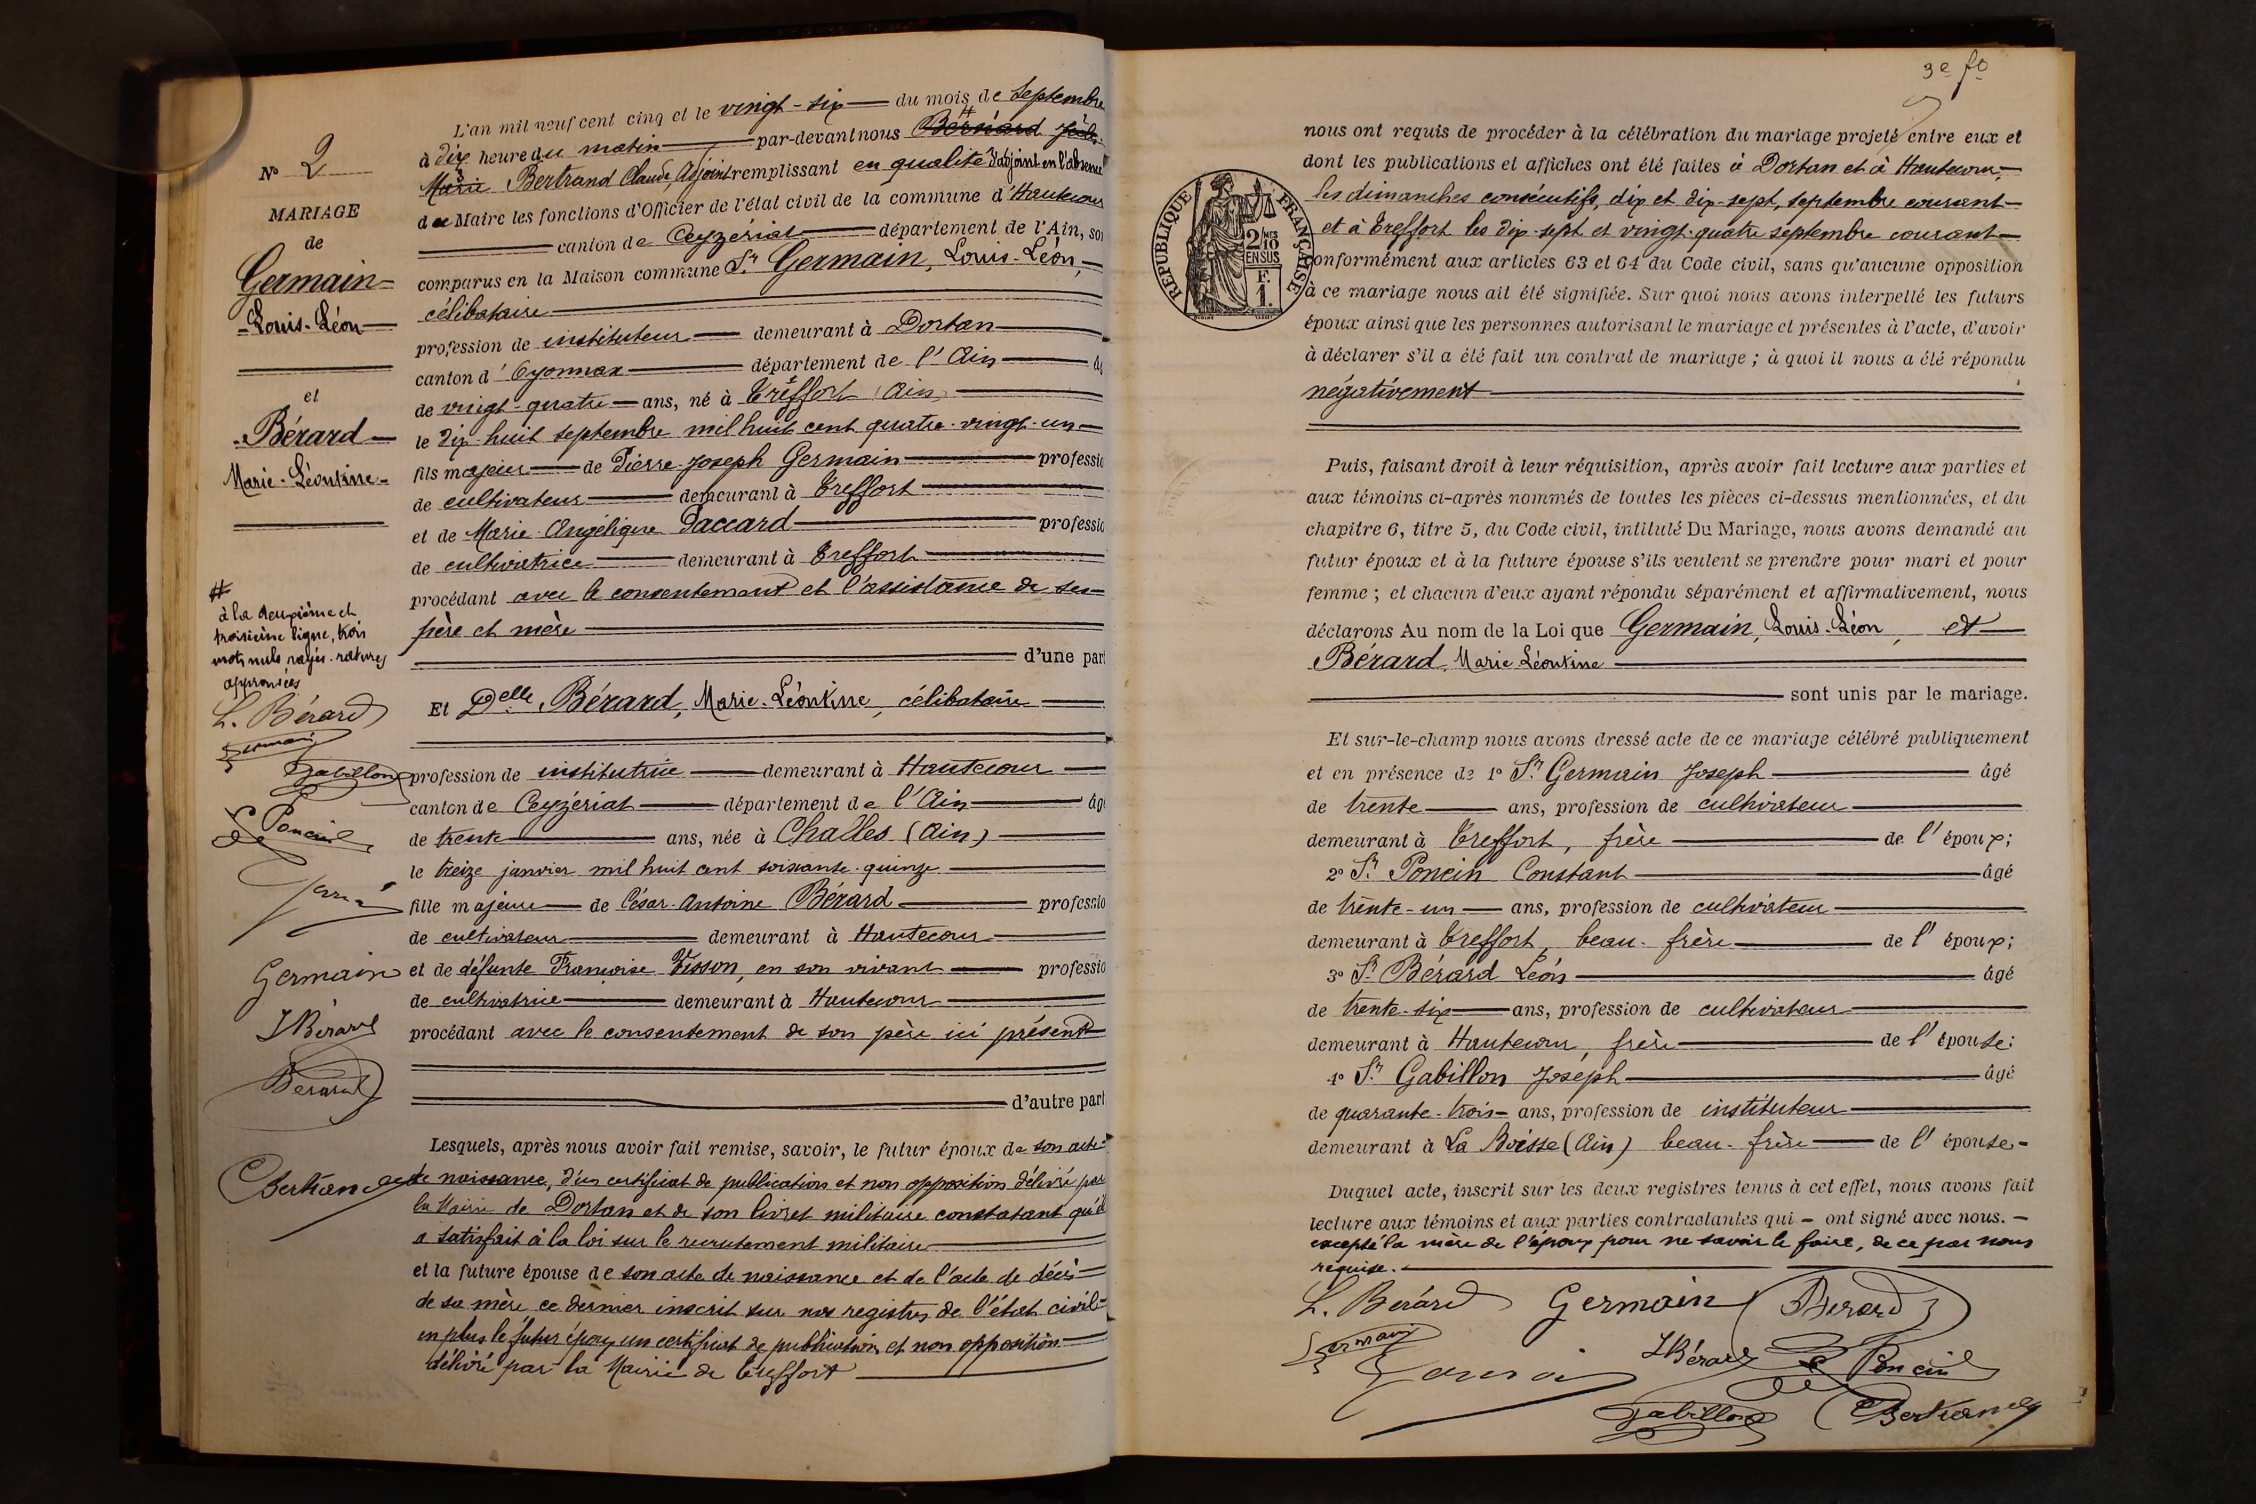 No 2
MARIAGE
de
Germain
Louis-Léon
et
Bérard
Marie-Léontine
#
à la deuxième et
troisième ligne, trois
mots nuls rayés. ratures
approuvées
L. Bérard
Germain
Gabillon
Poncin
Germain
JBérard
Bérard
CBertrand
L'an mil neuf cent cinq et le vingt-six du mois de Septembre
à dix heure du matin par-devant nous # Bernard Jules
Marie Bertrand Claude, Adjoint remplissant en qualité d'adjoint en l'absence
du Maire les fonctions d'Officier de l'état civil de la commune d'Hautecour
canton de Ceyzériat département de l'Ain, son
comparus en la Maison commune Sr Germain, Louis-Léon,
célibataire
profession de instituteur demeurant à Dortan
canton d'Oyonnax département de l'Ain âg
de vingt-quatre ans, né à Treffort (Ain)
le dix-huit septembre mil huit cent quatre-vingt-un
fils majeur de Pierre-Joseph Germain professio
de cultivateur demeurant à Treffort
et de Marie-Angélique Paccard professio
de cultivatrice demeurant à Treffort
procédant avec le consentement et l'assistance de ses
père et mère
d'une part
Et Delle Bérard, Marie-Léontine, célibataire
profession de institutrice demeurant à Hautecour
canton de Ceyzériat département de l'Ain âgé
de trente ans, née à Challes (Ain)
le treize janvier mil huit cent soixante-quinze
fille majeure de César-Antoine Bérard professio
de cultivateur demeurant à Hautecour
et de défunte Françoise Tisson, en son vivant professio
de cultivatrice demeurant à Hautecour
procédant avec le consentement de son père ici présent
d'autre part
Lesquels, après nous avoir fait remise, savoir, le futur époux de son acte
de naissance, d'un certificat de publication et non opposition délivré par
la Mairie de Dortan et de son livret militaire constatant qu'il
a satisfait à la loi sur le recrutement militaire
et la future épouse de son acte de naissance et de l'acte de décès
de sa mère ce dernier inscrit sur nos registres de l'état civil
en plus le futur époux un certificat de publication et non opposition
délivré par la Mairie de Treffort
3e fo
RÉPUBLIQUE FRANÇAISE
2/10
EN SUS
F.
1.
nous ont requis de procéder à la célébration du mariage projeté entre eux et
dont les publications et affiches ont été faites à Dortan et à Hautecour,
les dimanches consécutifs, dix et dix-sept, septembre courant
et à Treffort les dix-sept et vingt-quatre septembre courant
conformément aux articles 63 et 64 du Code civil, sans qu'aucune opposition
à ce mariage nous ait été signifiée. Sur quoi nous avons interpellé les futurs
époux ainsi que les personnes autorisant le mariage et présentes à l'acte, d'avoir
à déclarer s'il a été fait un contrat de mariage ; à quoi il nous a été répondu
négativement
Puis, faisant droit à leur réquisition, après avoir fait lecture aux parties et
aux témoins ci-après nommés de toutes les pièces ci-dessus mentionnées, et du
chapitre 6, titre 5, du Code civil, intitulé Du Mariage, nous avons demandé au
futur époux et à la future épouse s'ils veulent se prendre pour mari et pour
femme ; et chacun d'eux ayant répondu séparément et affirmativement, nous
déclarons Au nom de la Loi que Germain, Louis-Léon, et
Bérard, Marie Léontine
sont unis par le mariage.
Et sur-le-champ nous avons dressé acte de ce mariage célébré publiquement
et en présence de 1° Sr Germain Joseph âgé
de trente ans, profession de cultivateur
demeurant à Treffort, frère de l'époux;
2° Sr Poncin Constant âgé
de trente-un ans, profession de cultivateur
demeurant à Treffort, beau-frère de l'époux;
3° Sr Bérard Léon âgé
de trente-six ans, profession de cultivateur
demeurant à Hautecour, frère de l'épouse:
4° Sr Gabillon Joseph âgé
de quarante-trois ans, profession de instituteur
demeurant à La Boisse (Ain) beau-frère de l'épouse
Duquel acte, inscrit sur les deux registres tenus à cet effet, nous avons fait
lecture aux témoins et aux parties contractantes qui ont signé avec nous.
excepté la mère de l'époux pour ne savoir le faire, de ce par nous
requise.
L. Bérard Germain Bérard
Germain JBérard Poncin
Germain
Gabillon CBertrand